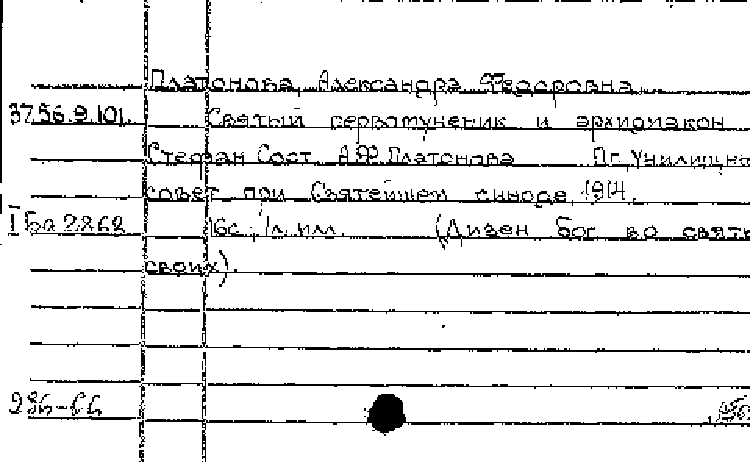 Платонова, Александра Федоровна
37.56.9.101. Святый первомученик и архидиакон
Стефан Сост. А.Ф.Платонова Пг. Училищн
совет при Святейшем синоде, 1914.
I Ба 2862 16с., 1л. илл. (Дивен бог во свят
своих).